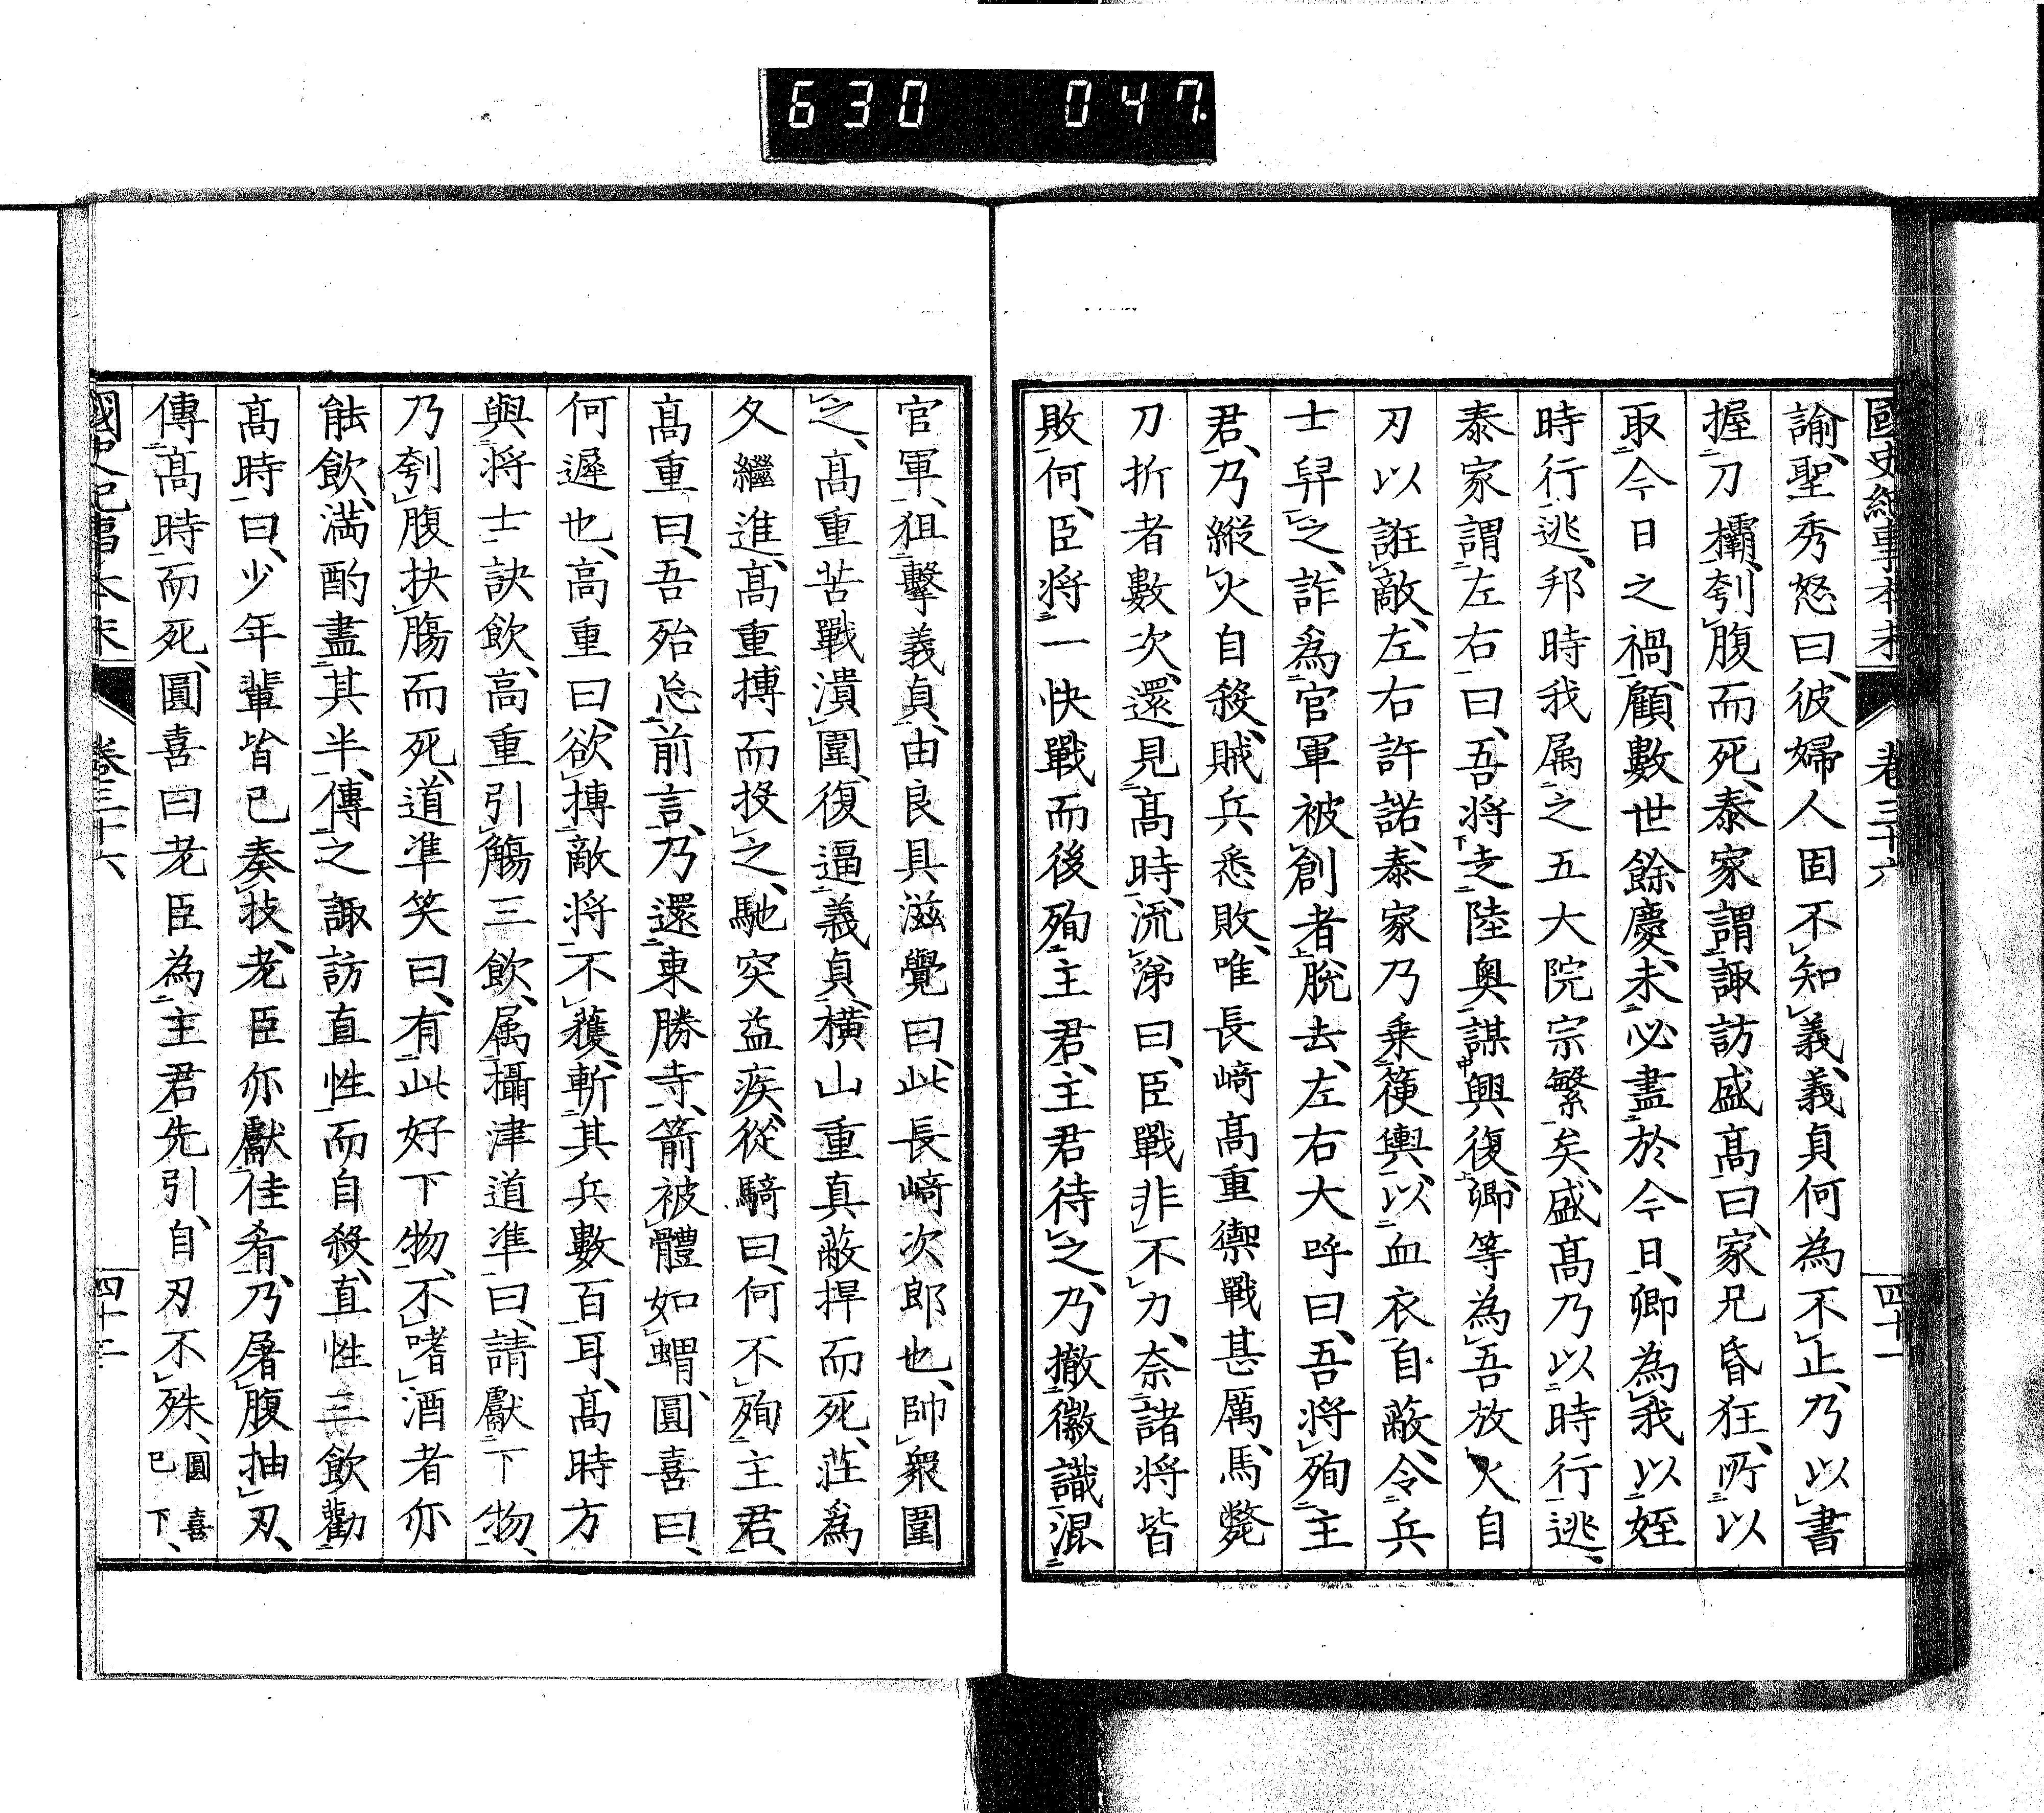 630 047.
國史紀事本末 卷三十六 四十一
諭、聖秀怒曰、彼婦人固不知義、義貞何為不止、乃以書
握刀欛、刳腹而死、泰家謂諏訪盛高曰、家兄昏狂、所以
取今日之禍、顧數世餘慶、未必盡於今日、卿為我以姪
時行逃、邦時我属之五大院宗繁矣、盛高乃以時行逃、
泰家謂左右曰、吾將走陸奥謀興復、卿等為吾放火自
刃以誑敵、左右許諾、泰家乃乗箯輿、以血衣自蔽、令兵
士舁之、詐爲官軍被創者脫去、左右大呼曰、吾将殉主
君、乃縱火自殺、賊兵悉敗、唯長﨑高重禦戰甚厲、馬斃
刀折者數次、還見高時、流涕曰、臣戰非不力、奈諸将皆
敗何、臣将一快戰而後殉主君、主君待之、乃撤徽識混
官軍、狙擊義貞、由良具滋覺曰、此長﨑次郎也、帥衆圍
之、高重苦戰潰圍、復逼義貞、横山重真蔽捍而死、莊爲
久繼進、高重摶而投之、馳突益疾、從騎曰、何不殉主君、
高重曰、吾殆忘前言、乃還東勝寺、箭被體如蝟、圓喜曰、
何遲也、高重曰、欲摶敵将不獲、斬其兵數百耳、高時方
與将士訣飲、高重引觴三飲、属攝津道準曰、請獻下物、
乃刳腹抉膓而死、道準笑曰、有此好下物、不嗜酒者亦
能飲、満酌盡其半、傳之諏訪直性而自殺、直性三飲勸
高時曰、少年輩皆已奏技、老臣亦獻佳肴、乃屠腹抽刃、
傳高時而死、圓喜曰老臣為主君先引、自刃不殊、圓喜
已下、
國史紀事本末 卷三十六 四十二